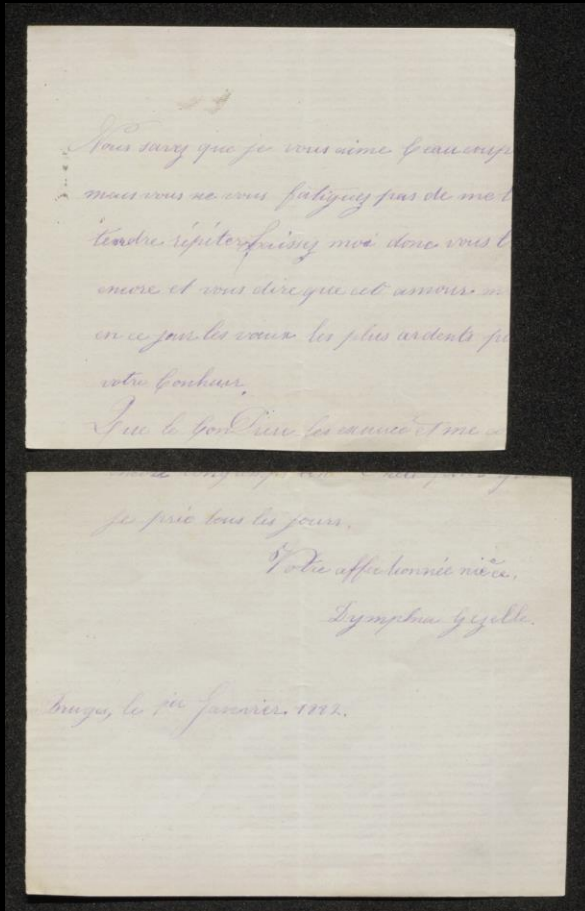 Vous savez que je vous aime beaucoup
mais vous ne vous fatiguez pas de me l
tendre répéter laissez moi donc vous l
encore et vous dire que cet amour m
en ce jour les vœux les plus ardents po
votre bonheur.
Que le bon Dieu les exauce et me
je prie tous les jours.
Votre affectionnée nièce,
Dymphna Gezelle.
Bruges, le 1er Janvier 1882.